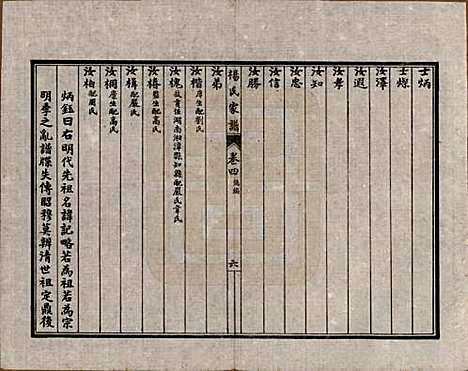 士炳
士爃
汝澤
汝遐
汝孝
汝知
汝忠
汝信
汝勝
楊氏家譜
卷四
六
汝弟
汝楷 庠生配劉氏
汝槐 歲貢任湖南湘潭縣知縣配嚴氏韋氏
汝椿 監生配高氏
汝楫 配嚴氏
汝桐 庠生配高氏
汝柏 配周氏
炳鈺曰右明代先祖名諱記略若為祖若為宗
明季之亂譜牒失傳昭穆莫辨清世祖定鼎後